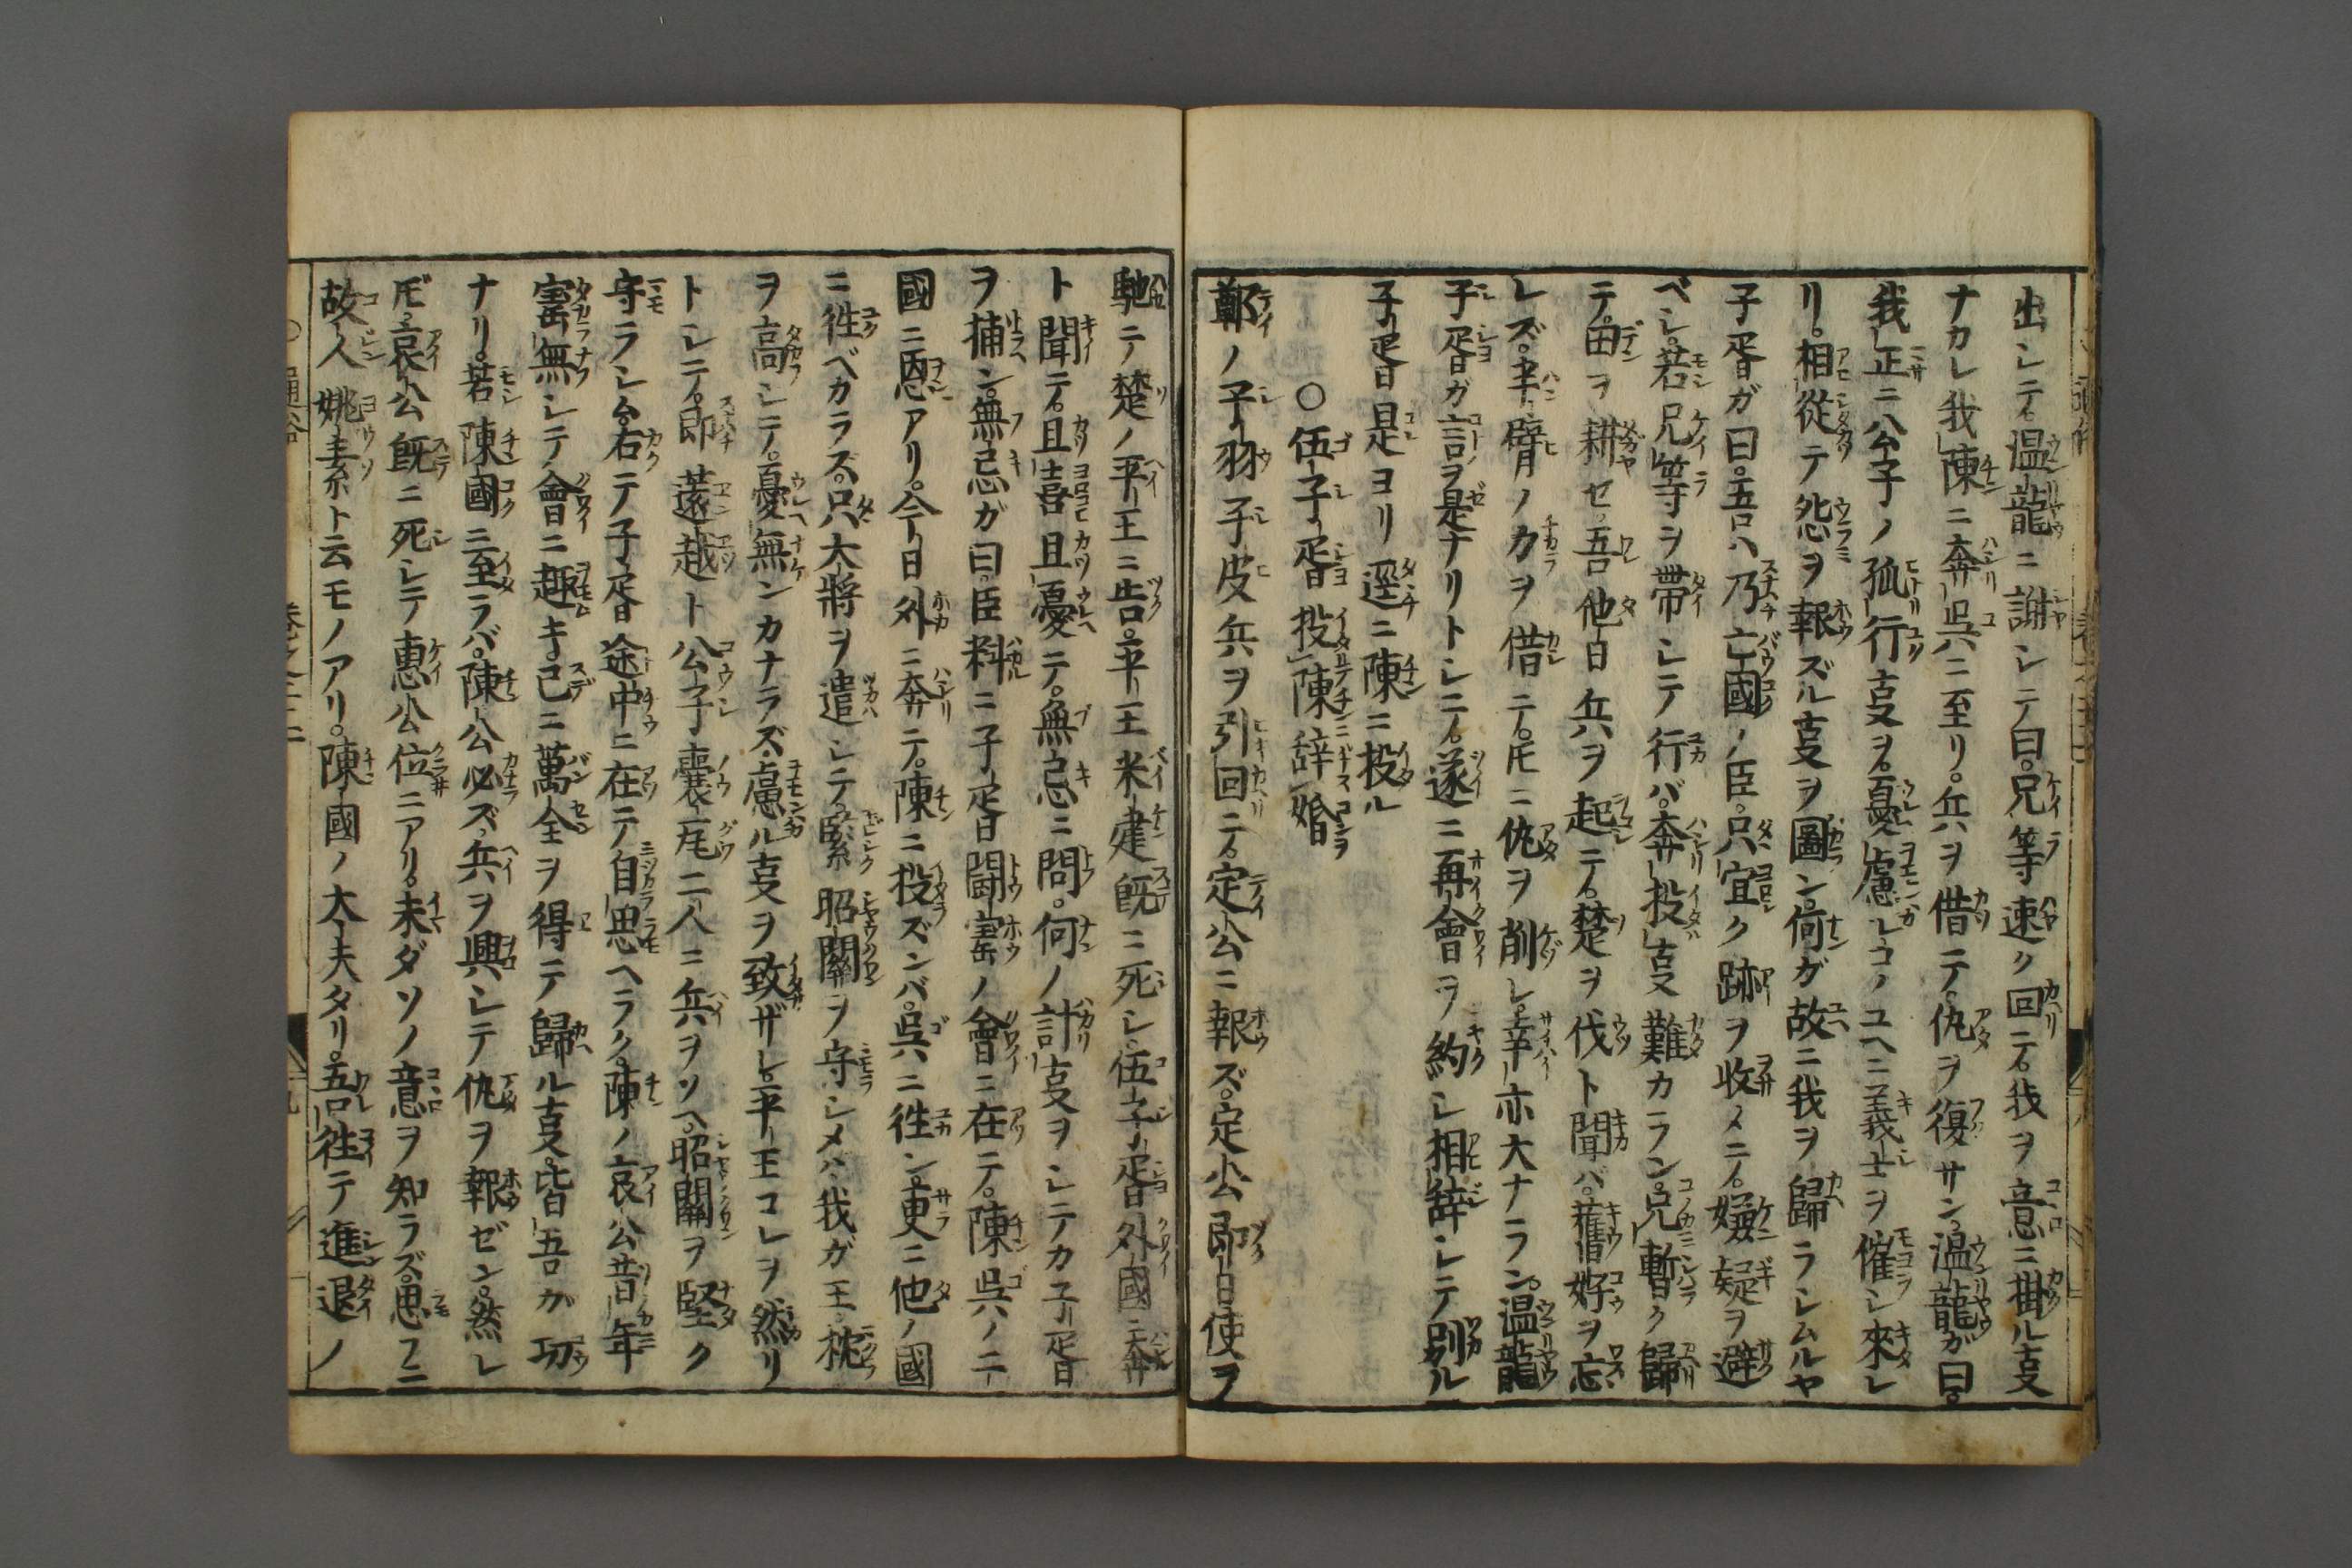 出シテ。温龍ニ謝シテ曰。兄等速ク回テ。我ヲ意ニ掛ル𠮷
ナカレ我陳ニ奔呉ニ至リ。兵ヲ借テ。仇ヲ復サン。温龍ガ曰。
我正ニ公子ノ孤行𠮷ヲ。憂慮レコノユヘニ義士ヲ催シ來レ
リ。相從テ怨ヲ報ズル𠮷ヲ圖ン。何ガ故ニ我ヲ歸ラシムルヤ
子胥ガ曰。吾ハ乃亡國ノ臣。只宜ク跡ヲ收メテ。嫌疑ヲ避
ベシ。若兄等ヲ帶シテ行バ。奔投𠮷難カラン。兄暫ク歸
テ。田ヲ耕セ。吾他日兵ヲ起テ。楚ヲ伐ト聞バ。舊好ヲ忘
レズ。半臂ノ力ヲ借テ。𪜈ニ仇ヲ削シ。幸亦大ナラン。温龍
子胥ガ言ヲ是ナリトシテ。遂ニ再會ヲ約シ相辞シテ別ル
子胥是ヨリ逕ニ陳ニ投ル
○伍子胥投陳辞婚
鄭ノ子羽子皮兵ヲ引回テ。定公ニ報ズ。定公即日使ヲ
馳テ楚ノ平王ニ告。平王米建既ニ死シ。伍子胥外國ニ奔
ト聞テ。且喜且憂テ。無忌ニ問。何ノ計𠮷ヲシテカ子胥
ヲ捕ン。無忌ガ曰。臣料ニ子胥鬪寳ノ會ニ在テ。陳呉ノ二
國ニ恩アリ。今日外ニ奔テ。陳ニ投ズンバ。呉ニ徃ン。更ニ他ノ國
ニ徃ベカラズ。只大將ヲ遣シテ。緊昭關ヲ守シメハ。我ガ王。枕
ヲ高シテ。憂無ンカナラズ。慮ル𠮷ヲ致ザレ。平王コレヲ然リ
トシテ。即薳越ト公子囊瓦二人ニ兵ヲソヘ。昭關ヲ堅ク
守ラシム。右テ子胥途中ニ在テ自思ヘラク。陳ノ哀公昔年
寳無シテ會ニ趣キ。已ニ萬全ヲ得テ歸ル𠮷。皆吾カ功
ナリ。若陳國ニ至ラバ。陳公必ズ兵ヲ興シテ仇ヲ報ゼン。然レ
𪜈。哀公既ニ死シテ惠公位ニアリ。未ダソノ意ヲ知ラズ。思フニ
故人姚素ト云モノアリ。陳國ノ大夫タリ。吾徃テ進退ノ